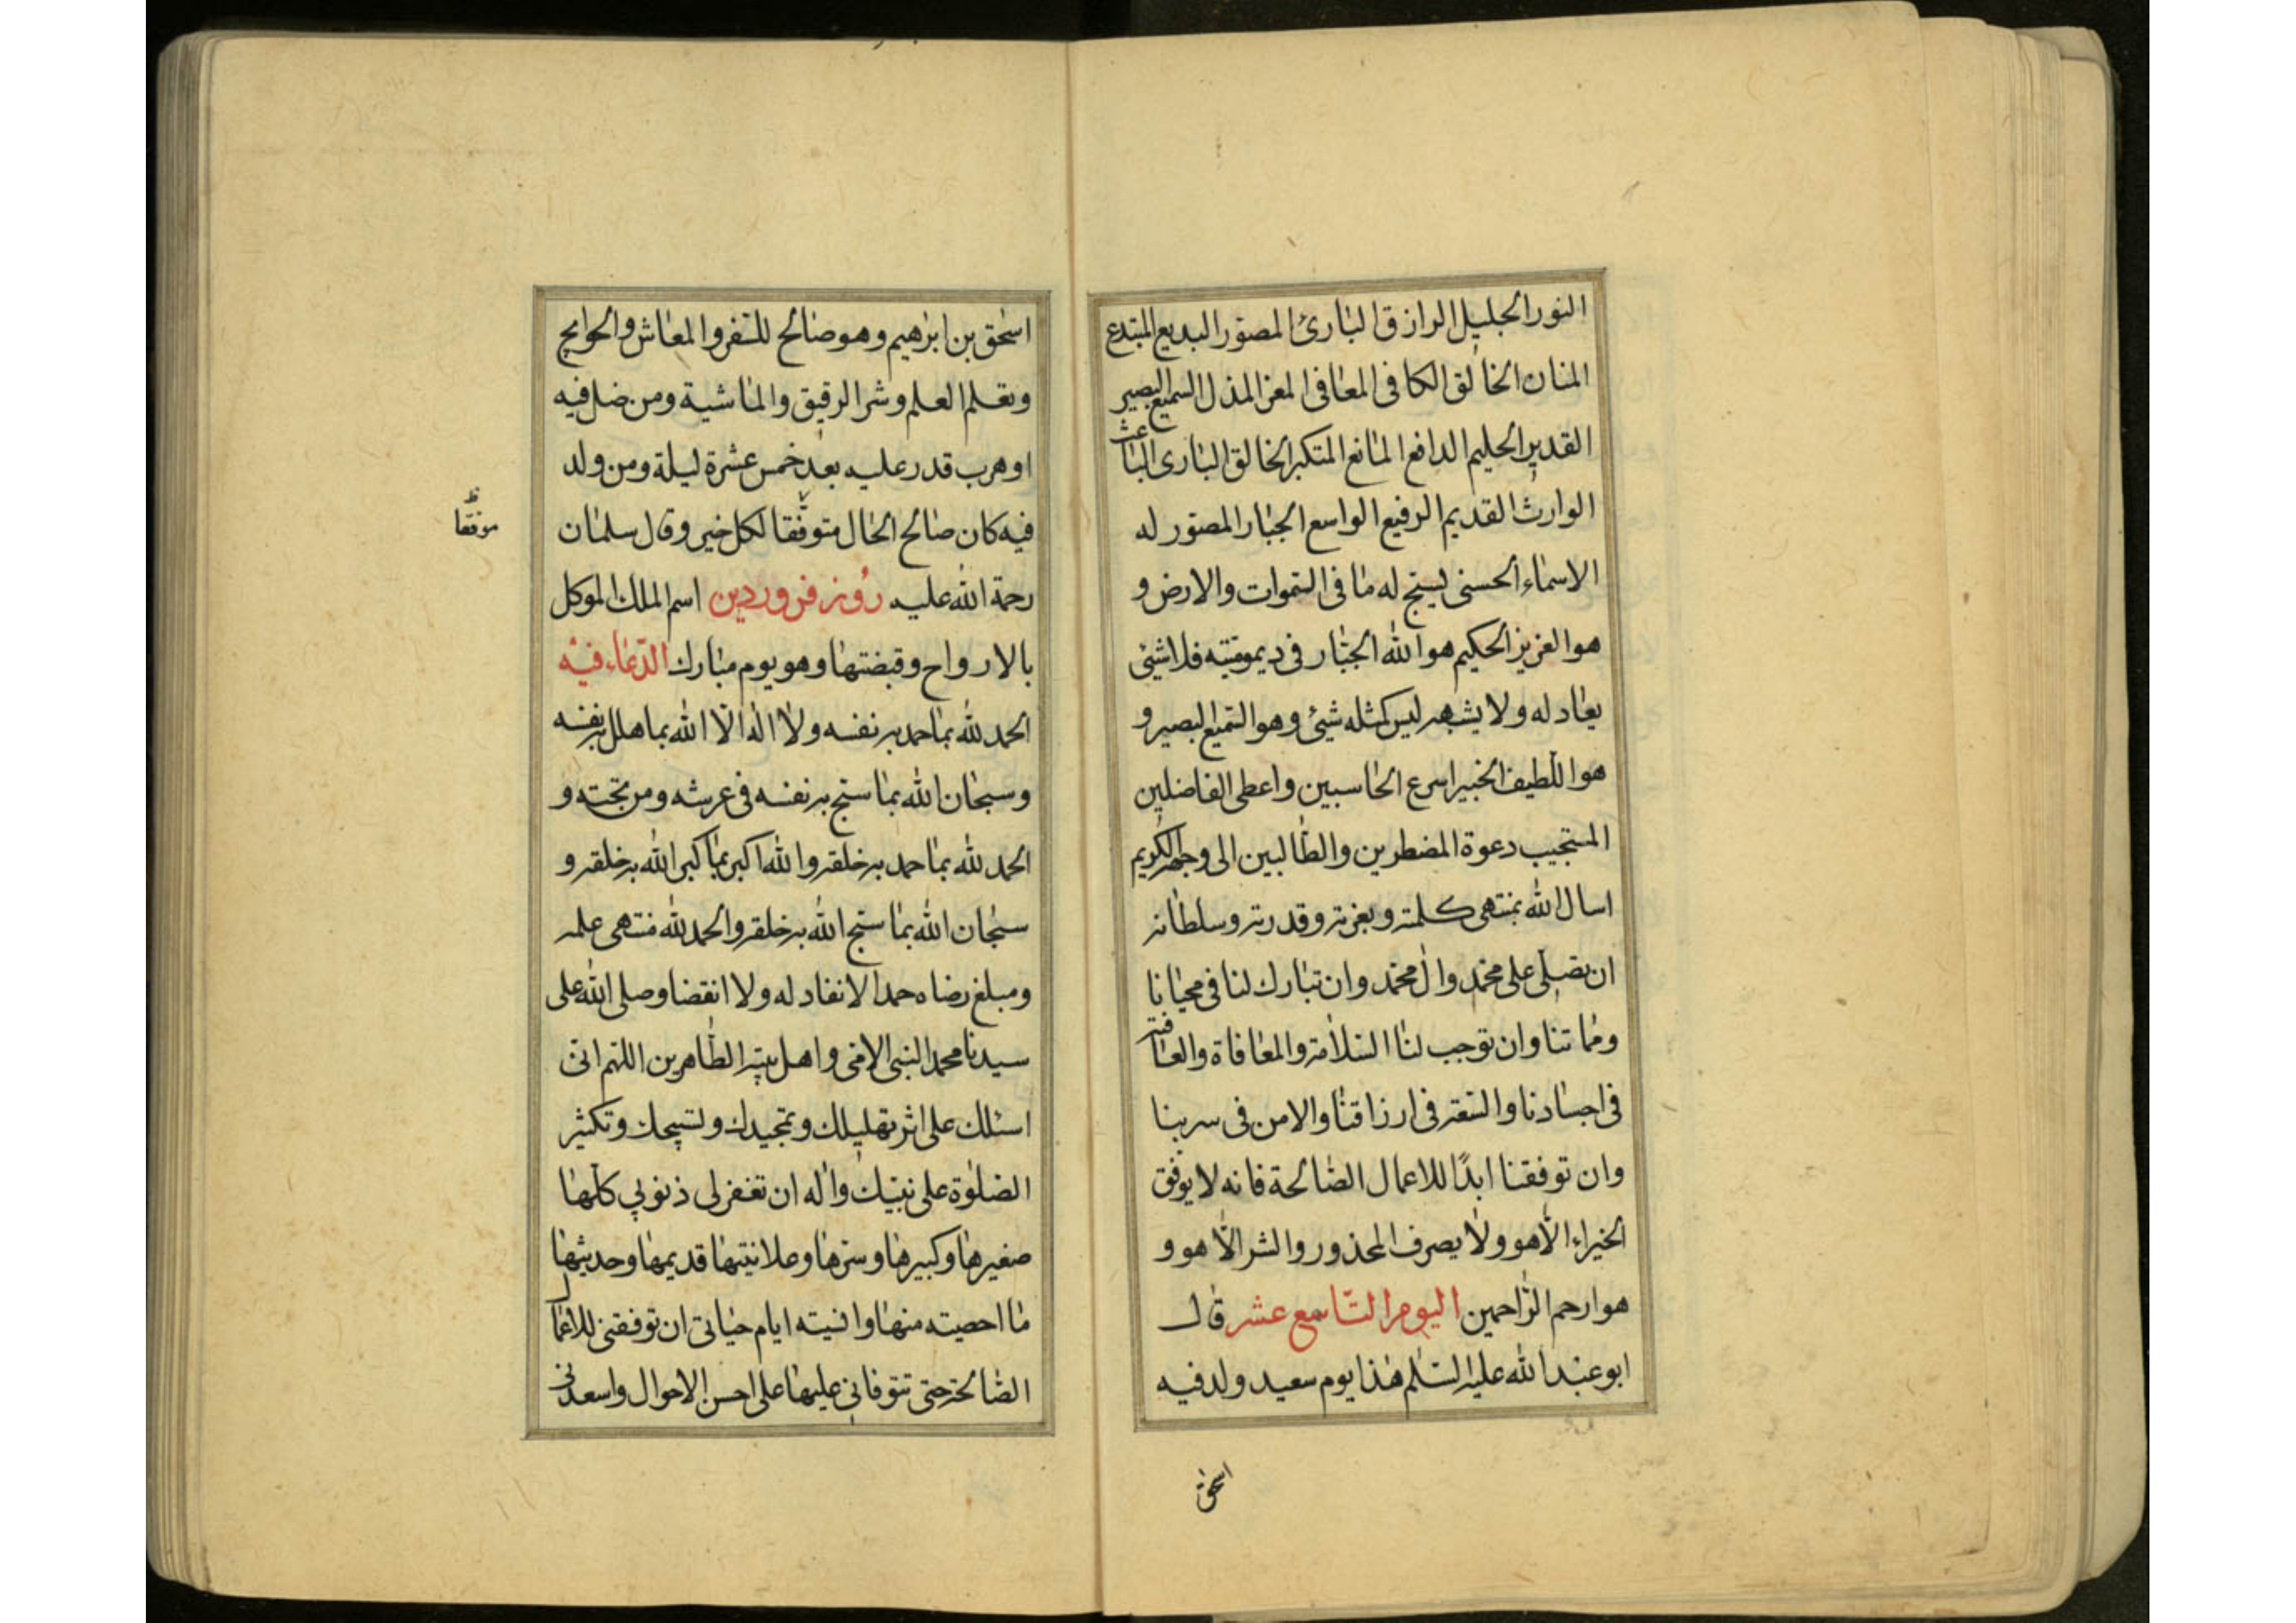 النور الجليل الرازق البارئ المصور البديع المبتدع
المنان الخالق الكافى المعافى المعز المذل السميع البصير
القدير الحليم الدافع المانع المتكبر الخالق البارى الباعث
الوارث القديم الرفيع الواسع الجبار المصور له
الاسماء الحسنى يسبح له ما فى السموات والارض و
هو العزيز الحكيم هو الله الجبار فى ديموميته فلا شيئ
يعادله ولا يشبهه ليس كمثله شيئ وهو السميع البصير و
هو اللطيف الخبير اسرع الحاسبين واعطى الفاضلين
المستجيب دعوة المضطرين والطالبين الى وجهه الكريم
اسال الله بمنتهى كلمته وبعزته وقدرته وسلطانه
ان يصلى على محمد وال محمد وان تبارك لنا فى محيانا
ومماتنا وان توجب لنا السلامة والمعافاة والعافية
فى اجسادنا والسعة فى ارزاقنا والامن فى سربنا
وان توفقنا ابدًا للاعمال الصالحة فانه لا يوفق
الخيراء الّا هو ولا يصرف المحذور والشر الّا هو و
هو ارحم الراحمين اليوم التاسع عشر قال
ابو عبد الله عليه السلم هذا يوم سعيد ولد فيه
اسحق
اسحق بن ابرهيم وهو صالح للسفر والمعاش والحوايج
وتعلم العلم وشر الرقيق والماشية ومن ضل فيه
او هرب قدر عليه بعد خمس عشرة ليلة ومن ولد
فيه كان صالح الحال متوفقا لكل خير وقال سلمان
موفقا ظ
رحمة الله عليه روز فروردين اسم الملك الموكل
بالارواح وقبضتها وهو يوم مبارك الدعاء فيه
الحمد لله بما حمد به نفسه ولا اله الّا الله بما هلل به نفسه
وسبحان الله بما سبح به نفسه فى عرشه ومن تحته و
الحمد لله بما حمد به خلقه والله اكبر بما كبر الله به خلقه و
سبحان الله بما سبح الله به خلقه والحمد لله منتهى علمه
ومبلغ رضاه حمدا لا نفاد له ولا انقضا وصلى الله على
سيدنا محمد النبى الامى واهل بيته الطاهرين اللهم انى
اسئلك على اثر تهليلك وتمجيدك وتسبيحك وتكثير
الصلوة على نبيك واله ان تغفر لى ذنوبي كلها
صغيرها وكبيرها وسرها وعلانيتها قديمها وحديثها
ما احصيته منها وانسيته ايام حياتى ان توفقنى للاعمال
الصالحة حتى تتوفانى عليها على احسن الاحوال واسعدنى